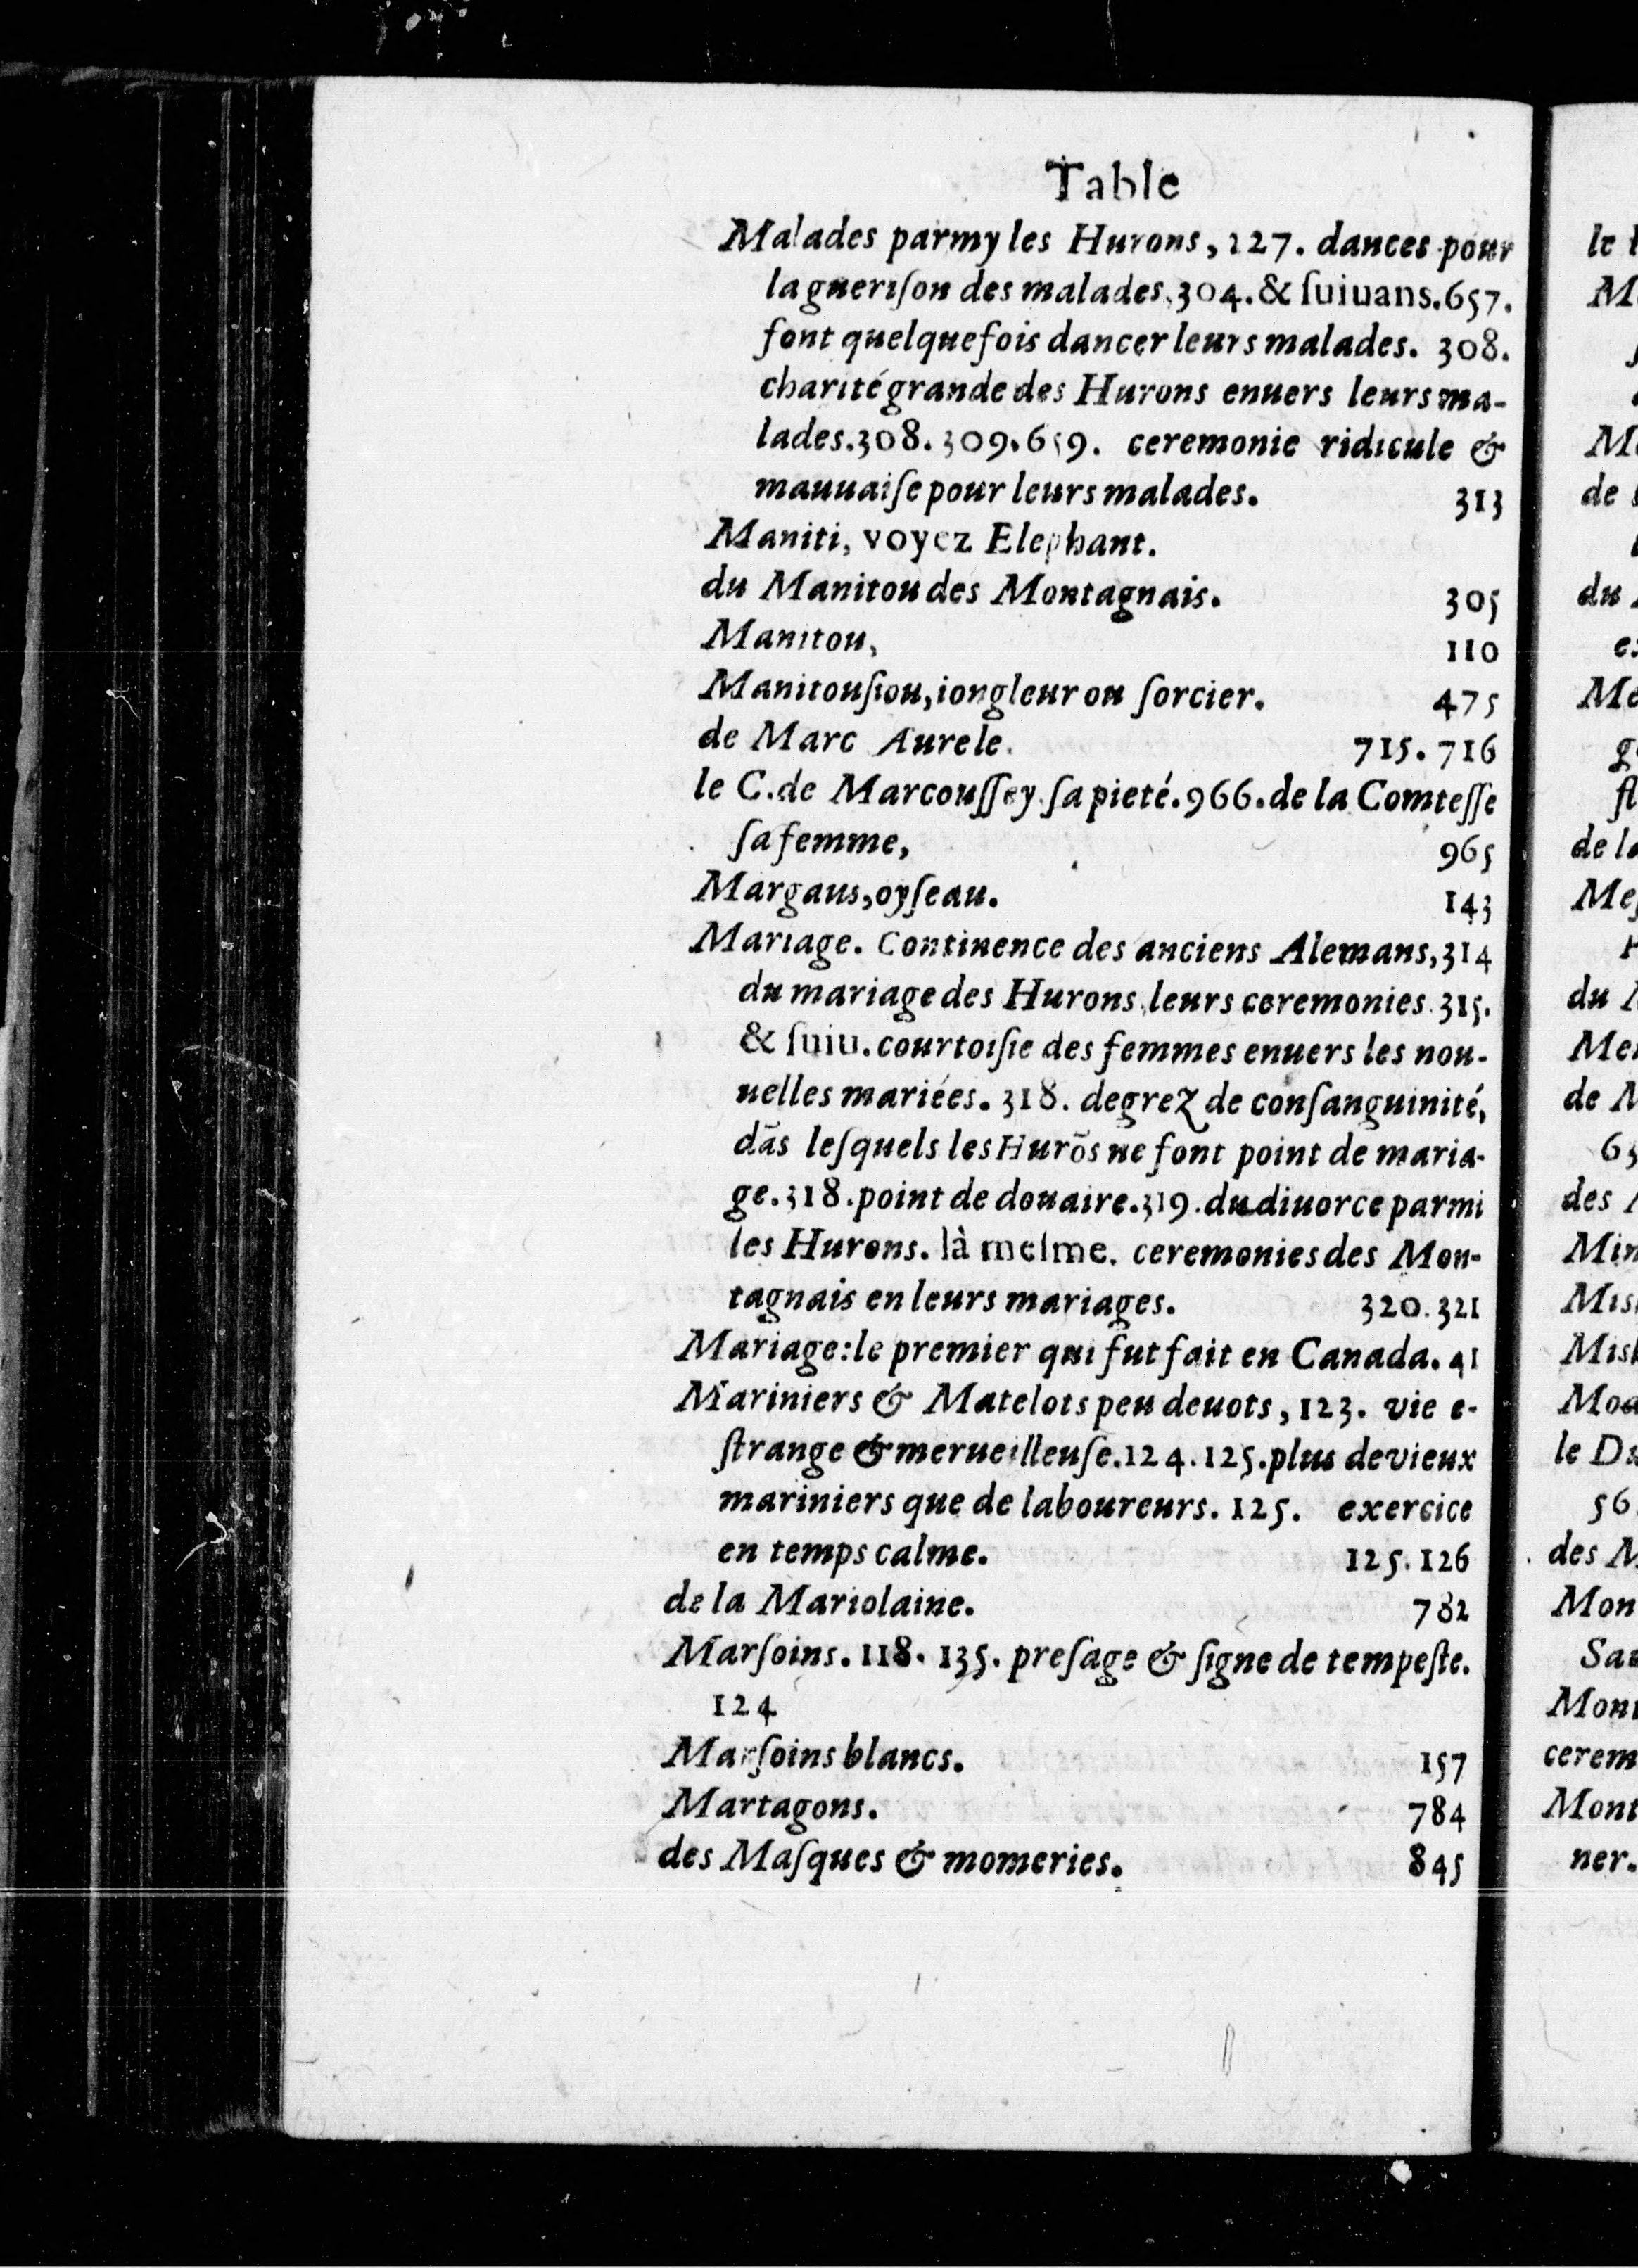 Table
Malades parmy les Hurons, 127. dances pour
la guerison des malades. 304. & ſuiuans. 657.
font quelquefois dancer leurs malades. 308.
charité grande des Hurons enuers leurs ma-
lades. 308. 309. 659. ceremonie ridicule &
mauuaiſe pour leurs malades. 313
Maniti, voyez Elephant.
du Manitou des Montagnais. 305
Manitou, 110
Manitouſiou, iongleur ou ſorcier. 475
de Marc Aurele. 715. 716
le C. de Marcouſſey ſa pieté. 966. de la Comteſſe
ſa femme, 965
Margaus, oyſeau. 143
Mariage. Continence des anciens Alemans, 314
du mariage des Hurons, leurs ceremonies. 315.
& ſuiu. courtoiſie des femmes enuers les nou-
uelles mariées. 318. degrez de conſanguinité,
dãs leſquels les Hurõs ne font point de maria-
ge. 318. point de douaire. 319. du diuorce parmi
les Hurons. là meſme. ceremonies des Mon-
tagnais en leurs mariages. 320. 321
Mariage: le premier qui fut fait en Canada. 41
Mariniers & Matelots peu deuots, 123. vie e-
ſtrange & merueilleuſe. 124. 125. plus de vieux
mariniers que de laboureurs. 125. exercice
en temps calme. 125. 126
de la Mariolaine. 782
Marſoins. 118. 135. preſage & ſigne de tempeſte.
124
Marſoins blancs. 157
Martagons. 784
des Maſques & momeries. 845